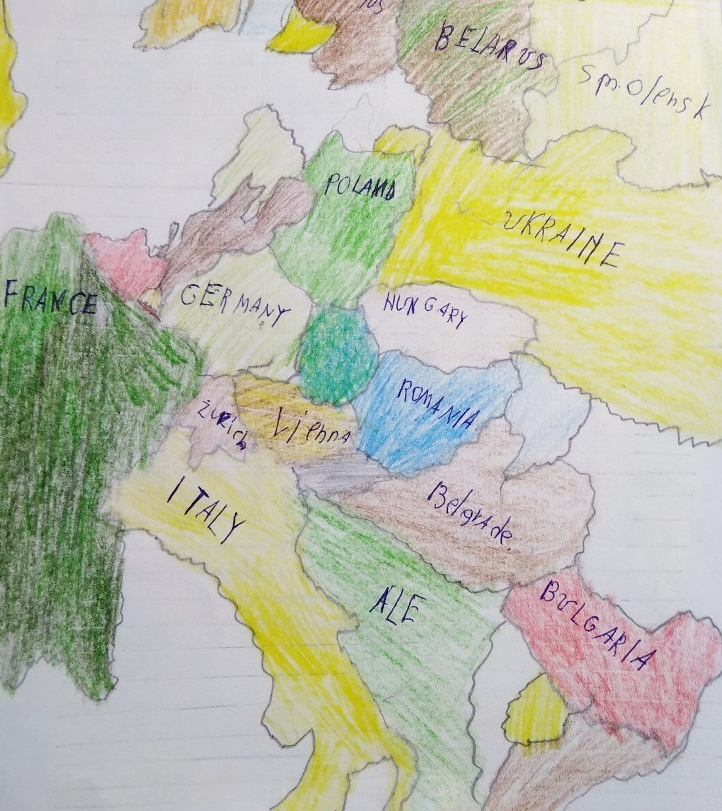 BELARUS
Smolensk
POLAND
UKRAINE
FRANCE
GERMANY
HUNGARY
ROMANIA
Zurich
Vienna
ITALY
Belgrade.
ALE
BULGARIA